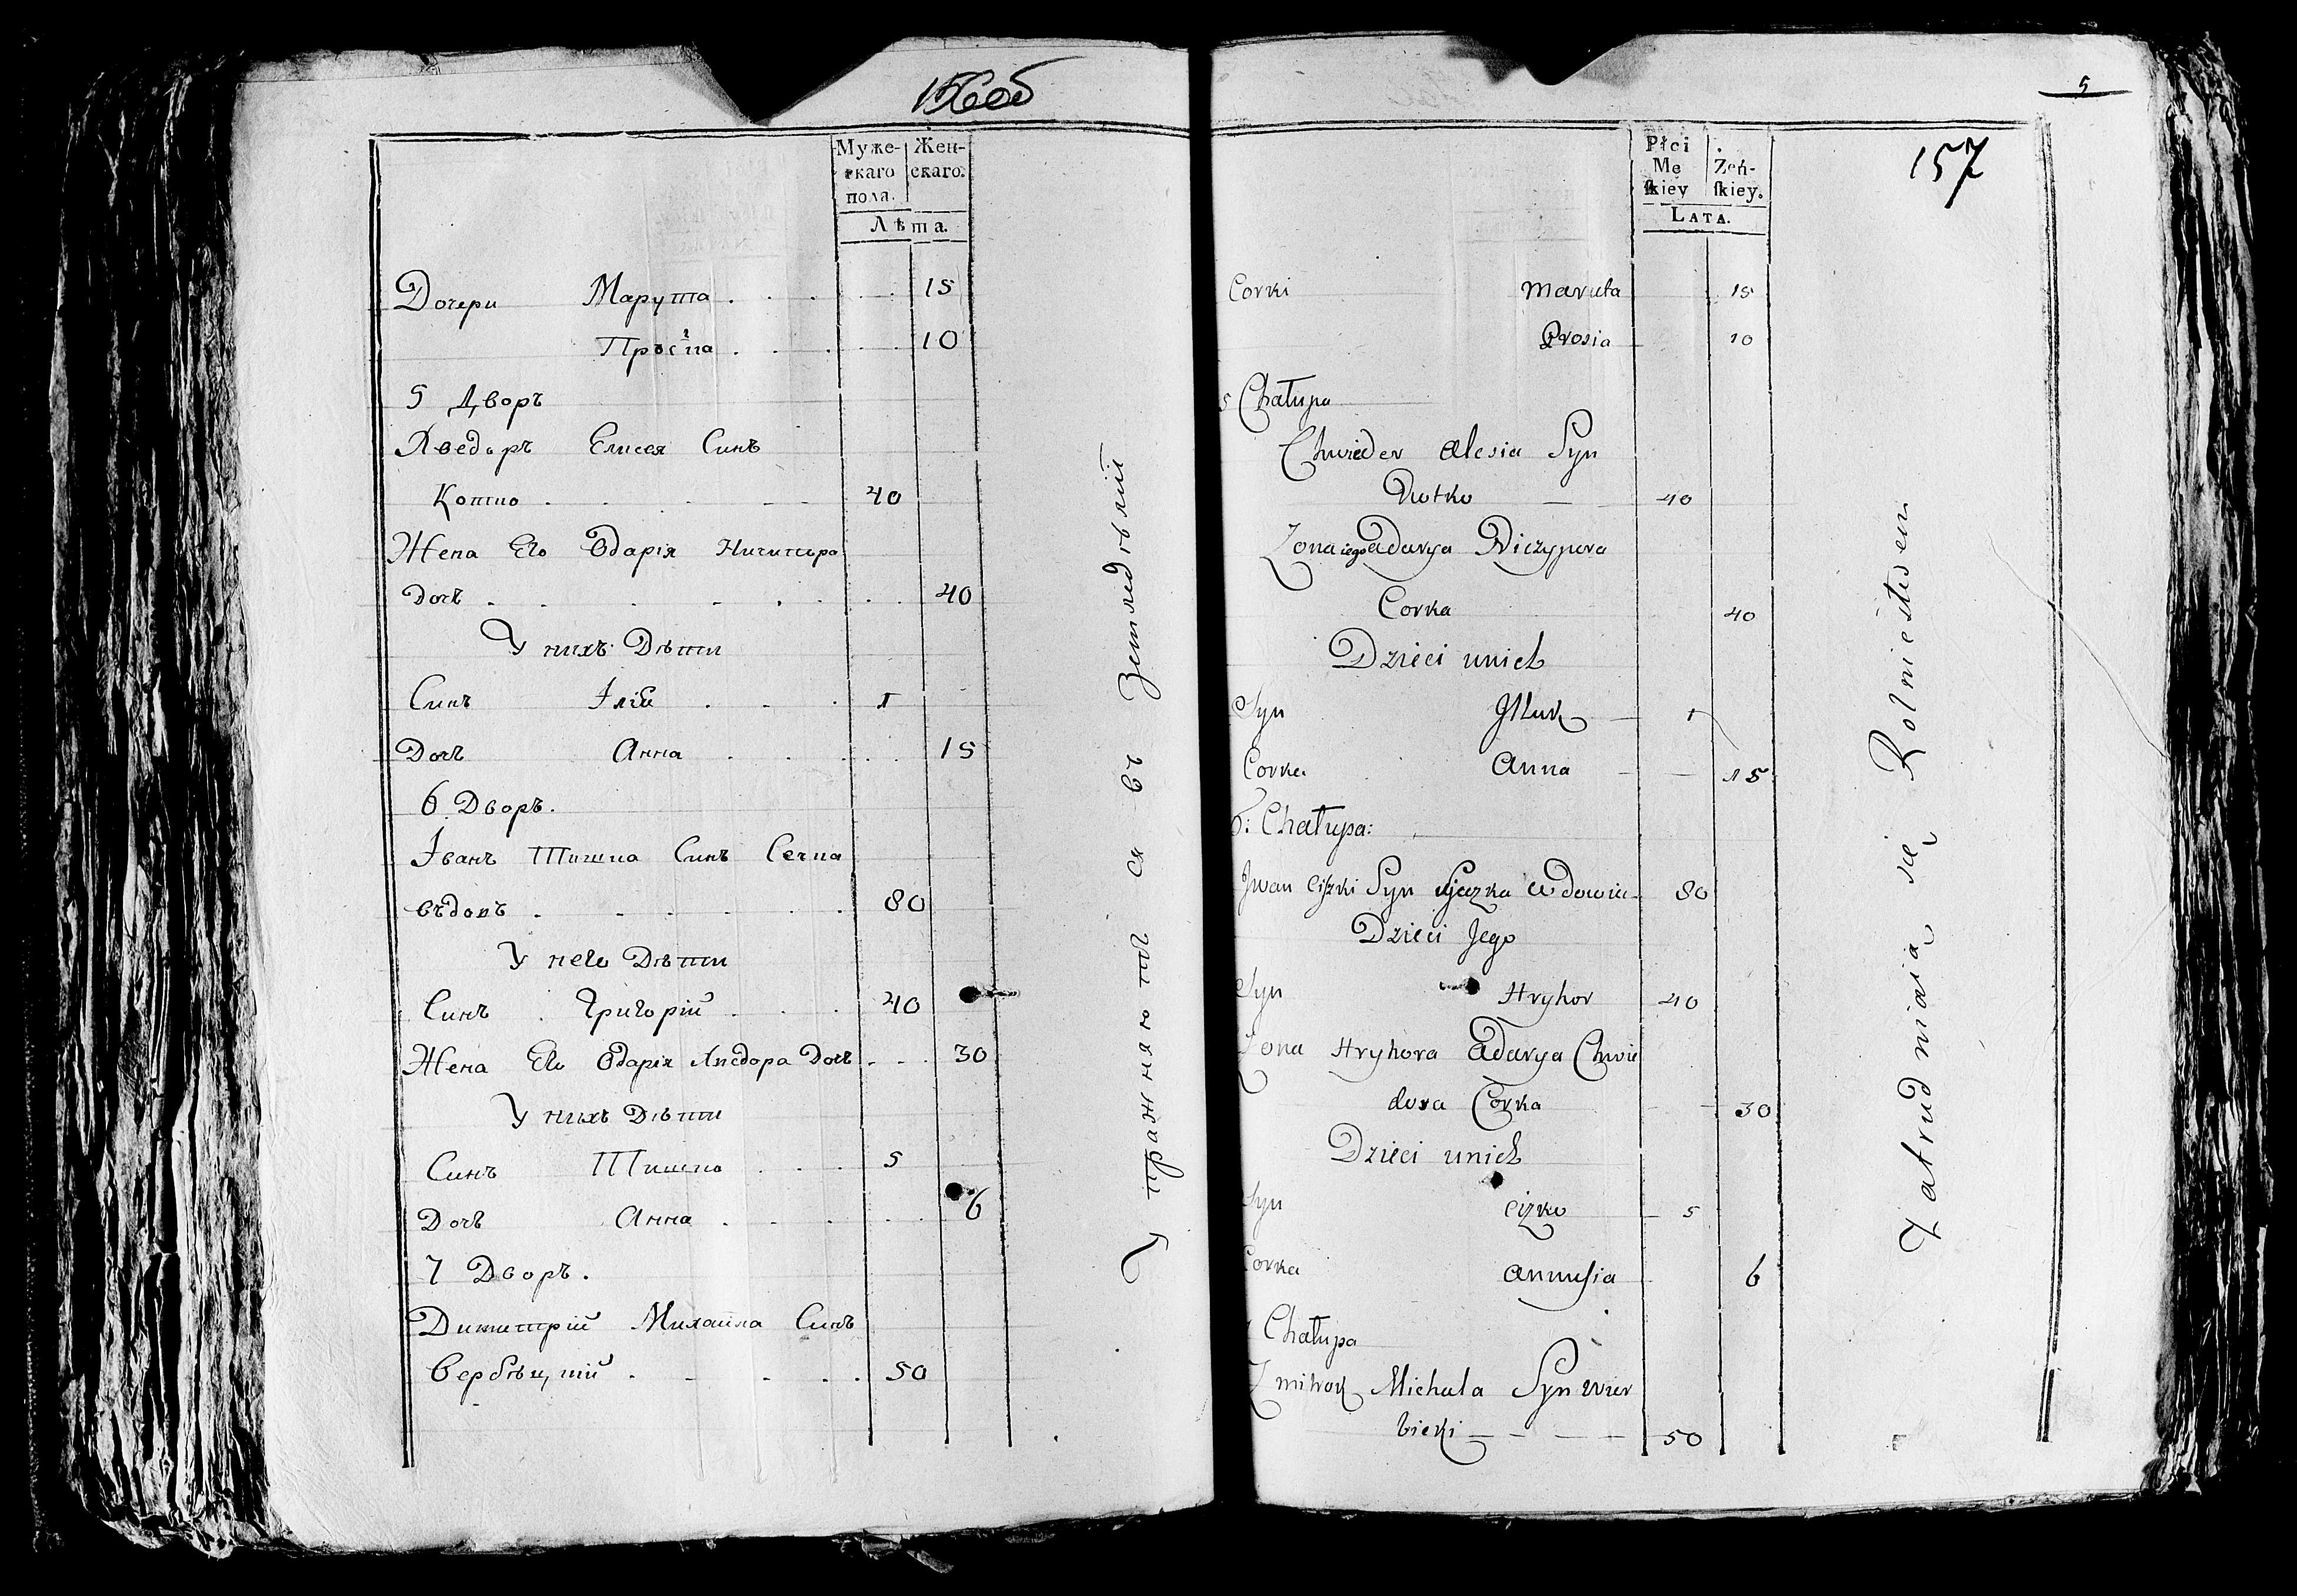 156об
Муже-
скаго
пола.
Жен-
скаго.
Лѣта.
Дочери Марута 15
Просіа 10
5 Дворъ
Хведоръ Елисея Синъ
Котко 40
Жена Его Одарія Ничипора
Дочь 40
У нихъ Дѣти
Синъ Іллія 1
Дочь Анна 15
6 Дворъ.
Іванъ Тишка Синъ Сечка
вдовъ 80
У него Дѣти
Синъ Григорій 40
Жена Его Одарія Хведора Дочь 30
У нихъ Дѣти
Синъ Тишко 5
Дочь Анна 6
7 Дворъ.
Димитрій Михаила Синъ
Вербѣцкій 50
Упражняются въ Земледѣлїи
5
157
Płci
Mę
ſkiey
Żeń-
ſkiey.
Lata.
Corki Maruta 15
Prosia 10
5 Chałupa
Chwieder Alesia Syn
Kotko 40
Zona iego Adarya Niczypora
Corka 40
Dzieci unich
Syn Illuk 1
Corka Anna 15
6: Chałupa:
Iwan Ciszki Syn Sieczka Wdowiec 80
Dzieci Jego
Syn Hryhor 40
Zona Hryhora Adarya Chwie
dora Corka 30
Dzieci unich
Syn Ciszko 5
Corka Annusia 6
Chałupa
Zmitrok Michała Syn Wier
bicki 50
Zatrudniaią się Rolnictwem